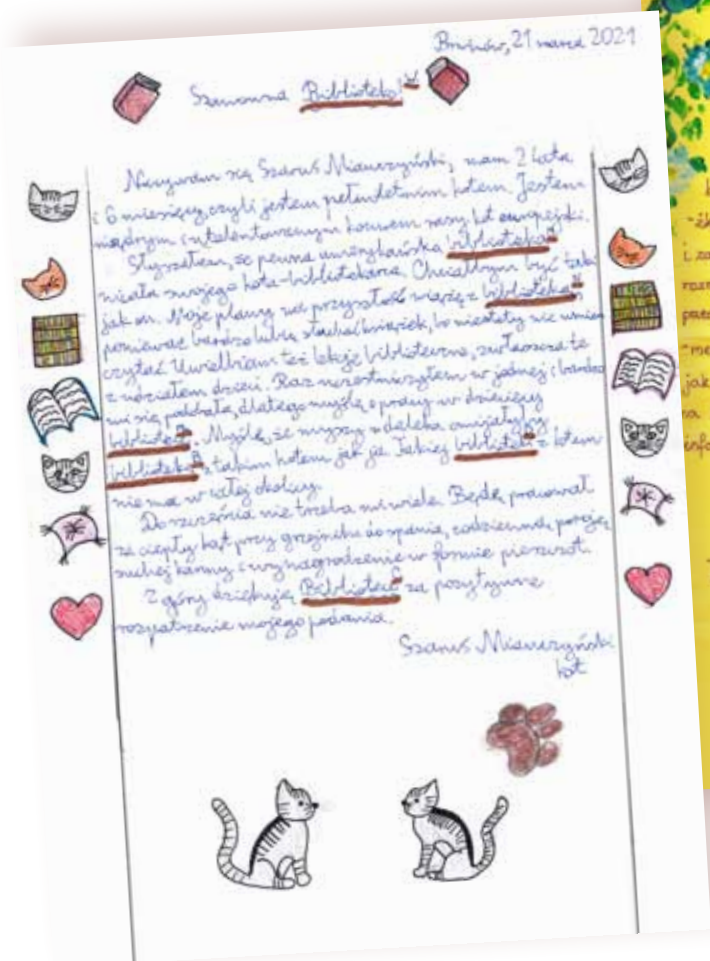 Brwinów, 21 marca 2021
Szanowna Biblioteko! W
Nazywam się Szaruś Miauczyński, mam 2 lata
i 6 miesięcy, czyli jestem pełnoletnim kotem. Jestem
mądrym i utalentowanym kocurem rasy kot europejski.
Słyszałem, że pewna amerykańska biblioteka
miała swojego kota-bibliotekarza. Chciałbym być taki
jak on. Moje plany na przyszłość wiążę z biblioteką
ponieważ bardzo lubię słuchać książek, bo niestety nie umiem
czytać. Uwielbiam też lekcje biblioteczne, zwłaszcza te
z udziałem dzieci. Raz uczestniczyłem w jednej i bardzo
mi się podobała, dlatego myślę o pracy w dziecięcej
bibliotece. Myślę, że myszy z daleka omijałyby
bibliotekę z takim kotem jak ja. Takiej biblioteki z kotem
nie ma w całej okolicy.
Do szczęścia nie trzeba mi wiele. Będę pracował
za ciepły kąt przy grzejniku do spania, codzienną porcję
suchej karmy i wynagrodzenie w formie pieszczot.
Z góry dziękuję Bibliotece za pozytywne
rozpatrzenie mojego podania.
Szaruś Miauczyński
kot
i
jak
na